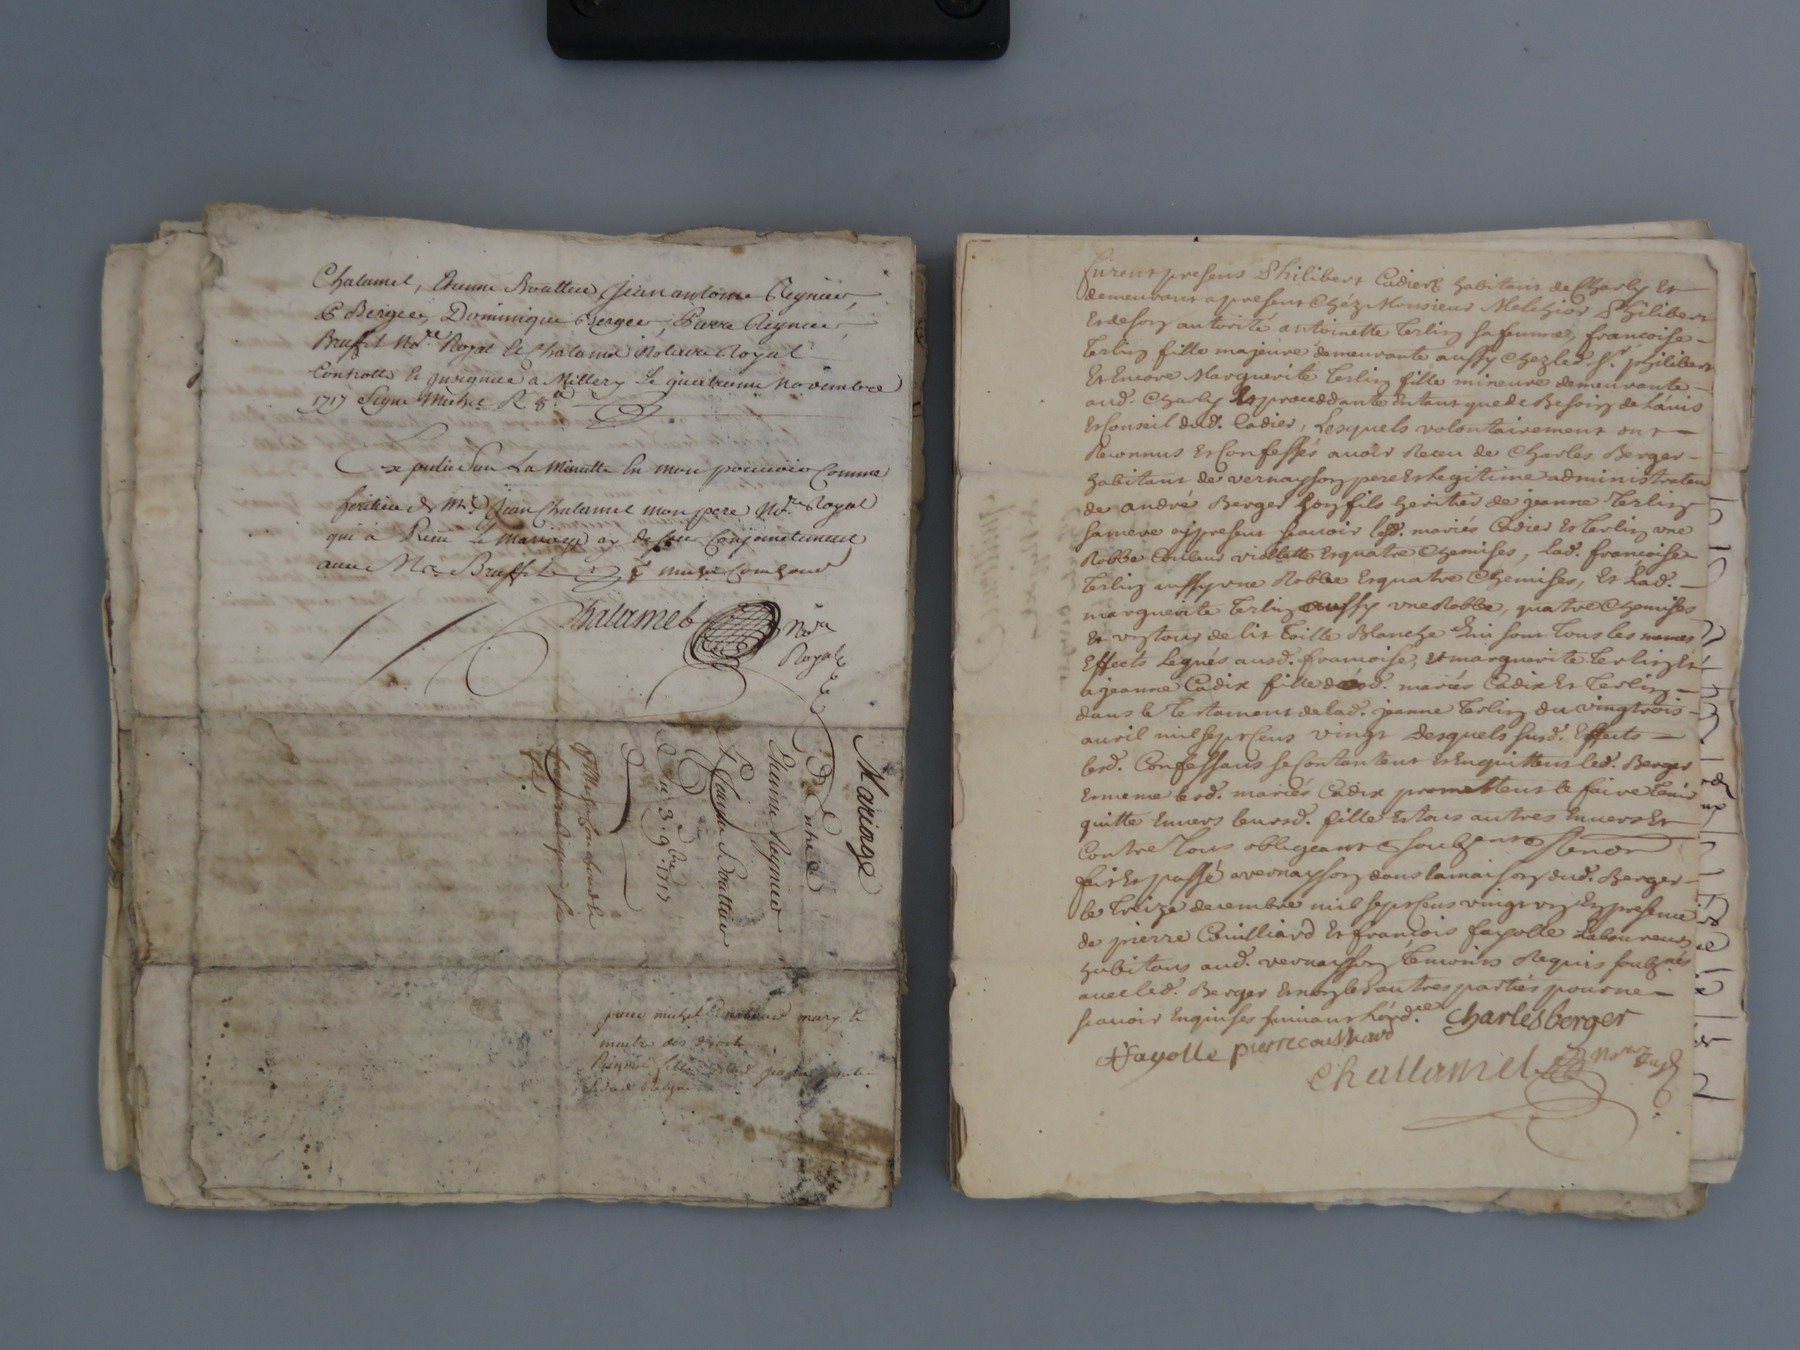 Chalamel, Etienne Bouttier, Jean antoine Reynier,
Berger, Dominique Berger, Pierre Reynier
Bruffit No.re Royal & Chalamel Notaire Royal
Controllé & insignué a Millery Le quatrieme novembre
1717 Signé Michel R 8
Expedié Sur La Minutte En mon pouvoir Comme
de Me. Jean Chalamel mon pere No.re Royal
qui à Receu Le Mariage cy dessus Conjointement
avec Me. Bruffit
Chalamel No.re
Royal
Mariage
D'entre
Etienne Reynier
&
Claude Bouttier
Du 3e 9bre 1717
pour michel mary &
maitre des droits
furent presens Philibert Cadier habitant de Charly Et
demeurant apresent Chéz Monsieur Melchior Philibert
Et de son autorité antoinette Terlin sa femme, francoise
Terlin fille majeure demeurante aussy chez led. Sr. philibert
Et Encore Marguerite Terlin fille mineure demeurante
aud. Charly Et proceddante Entant que de Besoin de L'avis
Et Conseil dud. Cadier, Lesquels volontairement ont
Reconnus Et Confessés avoir Receu de Charles Berger
habitant de vernayson pere Et legitime administrateur
de andré Berger son fils heritier de jeanne Terlin
sa mere apresent scavoir lesd. mariés Cadier Et Terlin une
Robbe Couleur viollette Et quatre Chemises, lad. francoise
Terlin aussy une Robbe Et quatre Chemises, Et Lad.
marguerite Terlin aussy une Robbe, quatre Chemises
Et un tour de lit Toille Blanche qui sont Tous les mêmes
Effects Legués ausd. francoise, Et marguerite Terlin Et
a jeanne Cadix fille desd. mariés Cadix Et Terlin
dans le Testament de lad. jeanne Terlin du vingtrois
avril mil sept Cens vingt desquels susd. Effects
lesd. Confessans se Contentent Et En quittent led. Berger
Et meme lesd. mariés Cadix promettent le faire Tenir
quitte Envers leursd. fille Et tous autres Envers Et
Contre Tous obligeant & soubzent &
fait Et passé a vernayson dans la maison dud. Berger
le Treize decembre mil sept Cens vingt un En presence
de pierre Couilliard Et francois fayolle Laboureurs
habitans aud. vernayson Temoins Requis soubznés
avec led. Berger Et non les autres parties pour ne
scavoir Enquises suivant L'ord.ce Charles berger
f fayolle pierre couilliard
Challamel Nore Royal